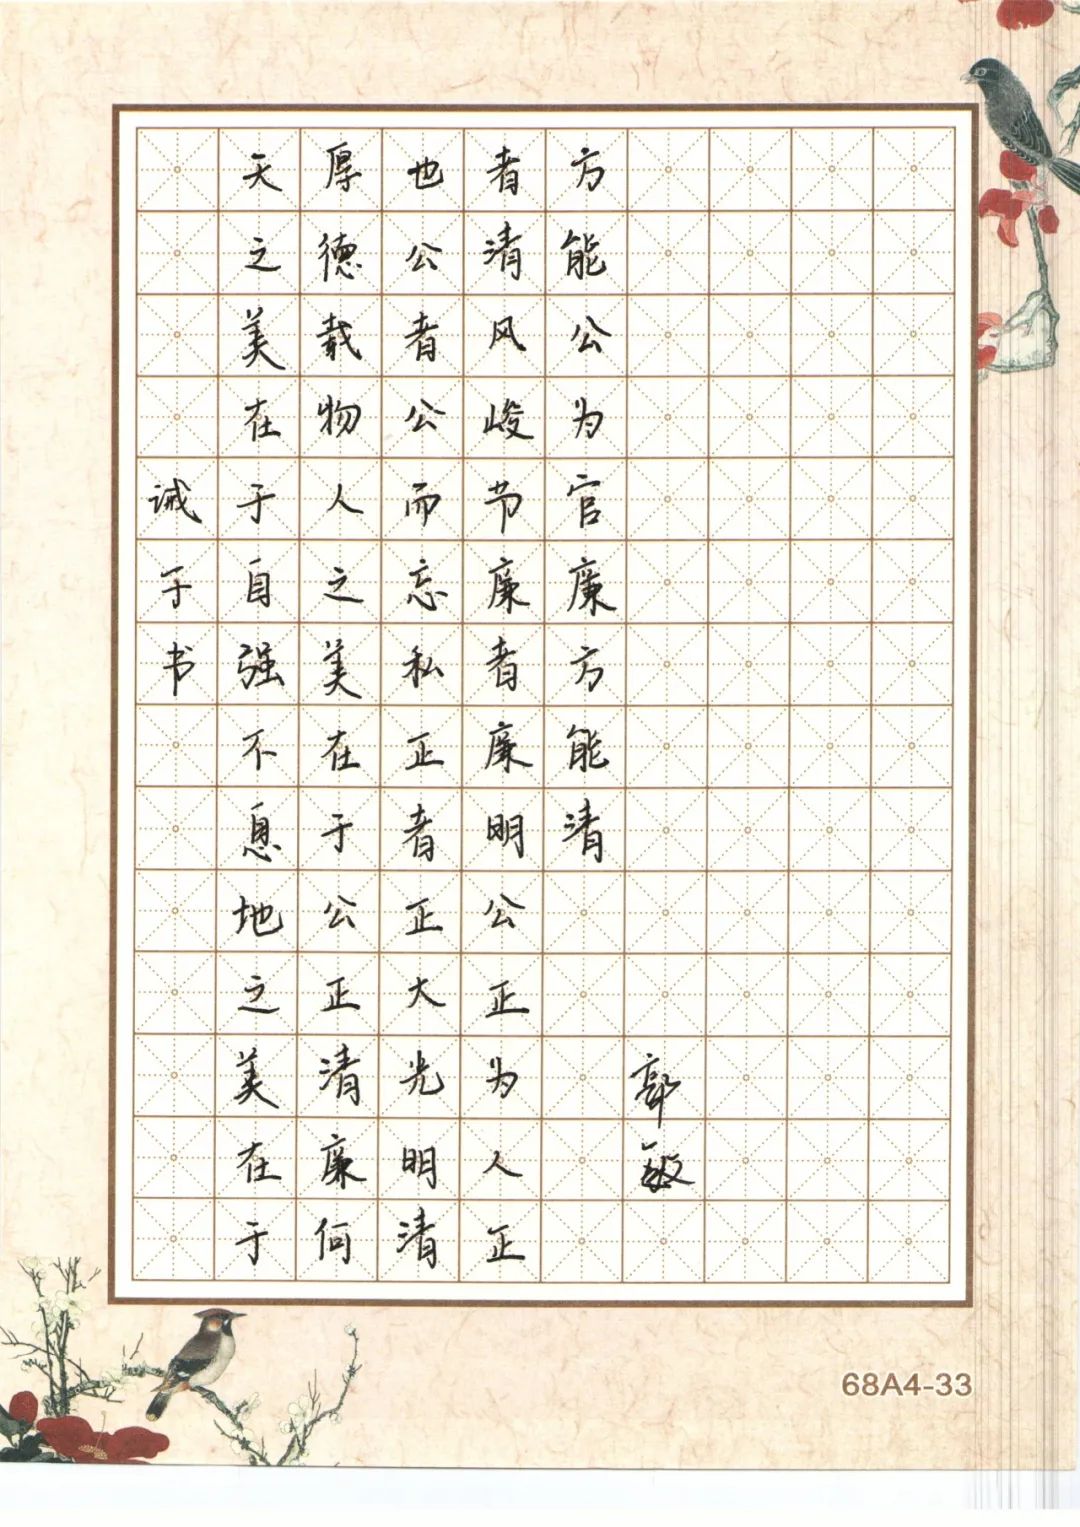 诫子书
天之美在于自强不息地之美在于
厚德载物人之美在于公正清廉何
也公者公而忘私正者正大光明清
者清风峻节廉者廉明公正为人正
方能公为官廉方能清
郭敏
68A4-33